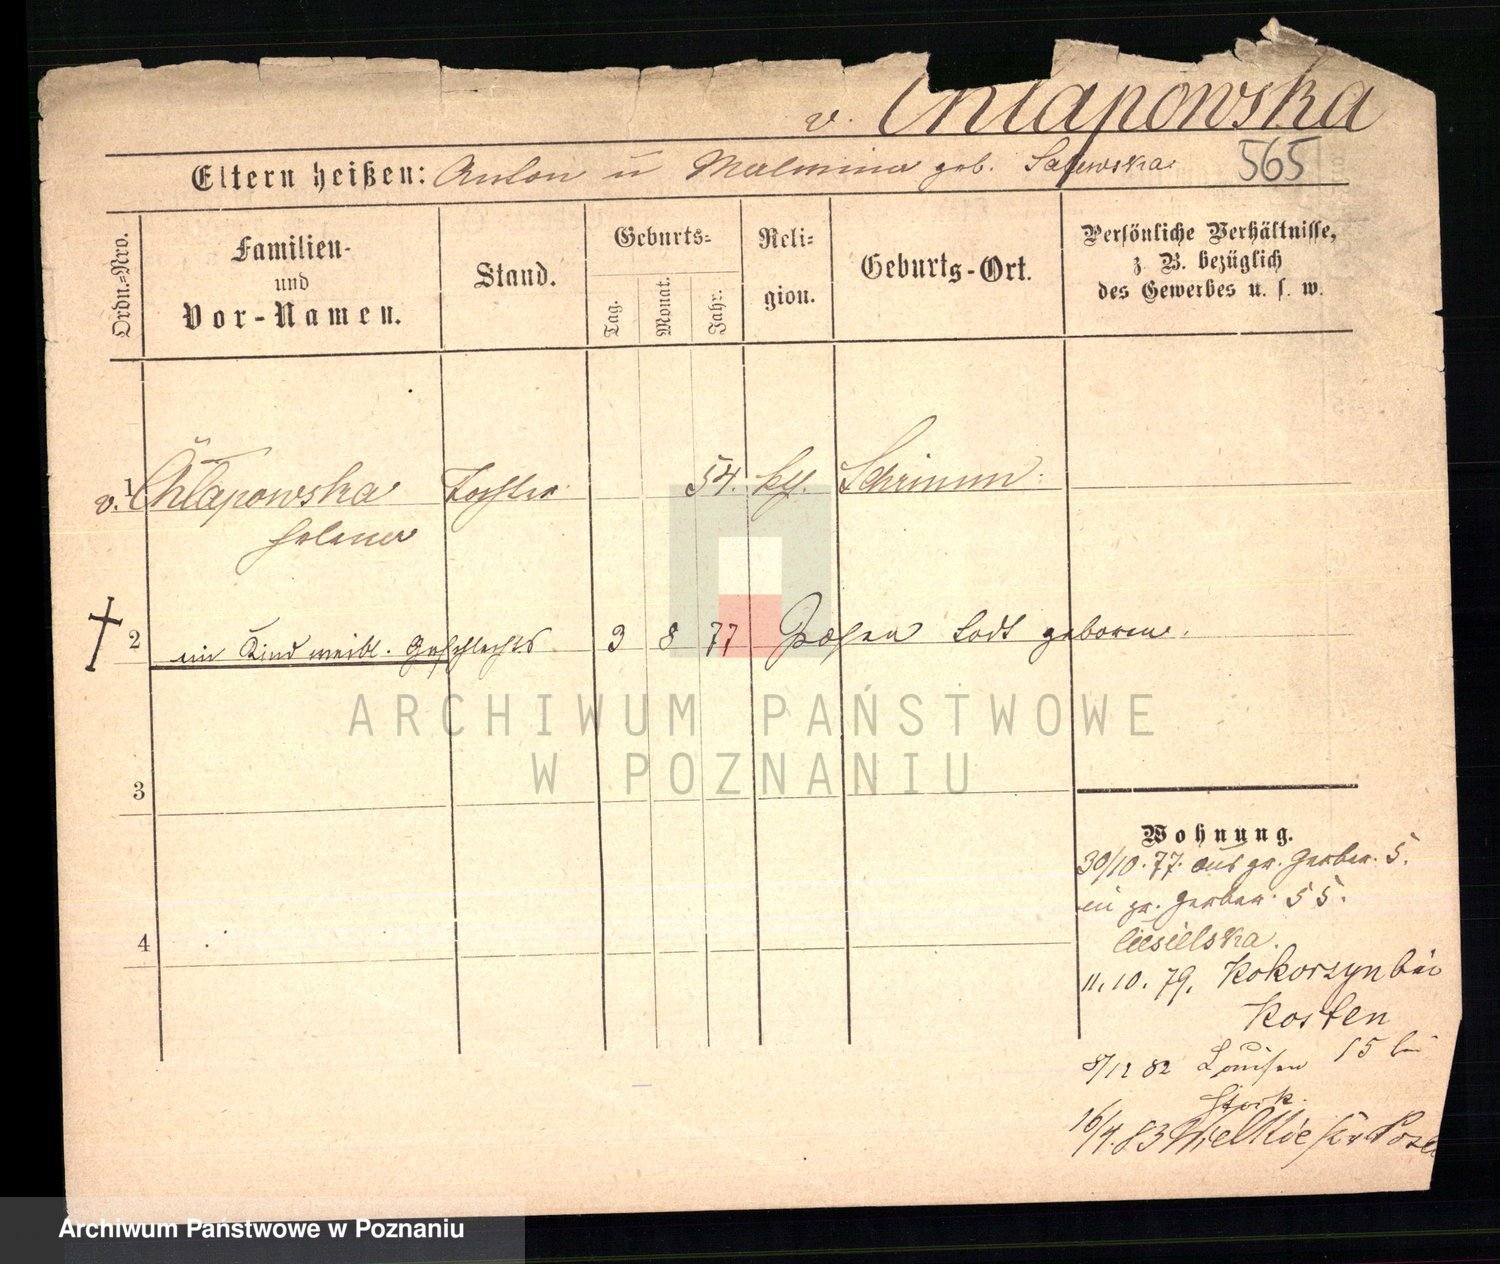 v. Chłapowska
Eltern heißen: Anton u Malwina geb. 565
Ordn.-Nro.
Familien- und Vor-Namen.
Stand.
Geburts-
Tag.
Monat.
Jahr.
Reli-gion.
Geburts-Ort.
Persönliche Verhältnisse,
z. B. bezüglich
des Gewerbes u. s. w.
1 v. Chłapowska Tochter 54. kth. Schrimm
Helena
2 ein Kind weibl. Geschlechts 3 8 77 Posen todt geboren.
3
4
Wohnung.
30/10. 77. aus gr. Gerber. 5.
in gr. Gerber. 55.
Ciesielska.
11. 10. 79. Kokorzyn bei
Kosten
8/12 82 Louisen 15 bei
16/4. 83 Wielkie Kr Posen
ARCHIWUM PAŃSTWOWE
W POZNANIU
Archiwum Państwowe w Poznaniu